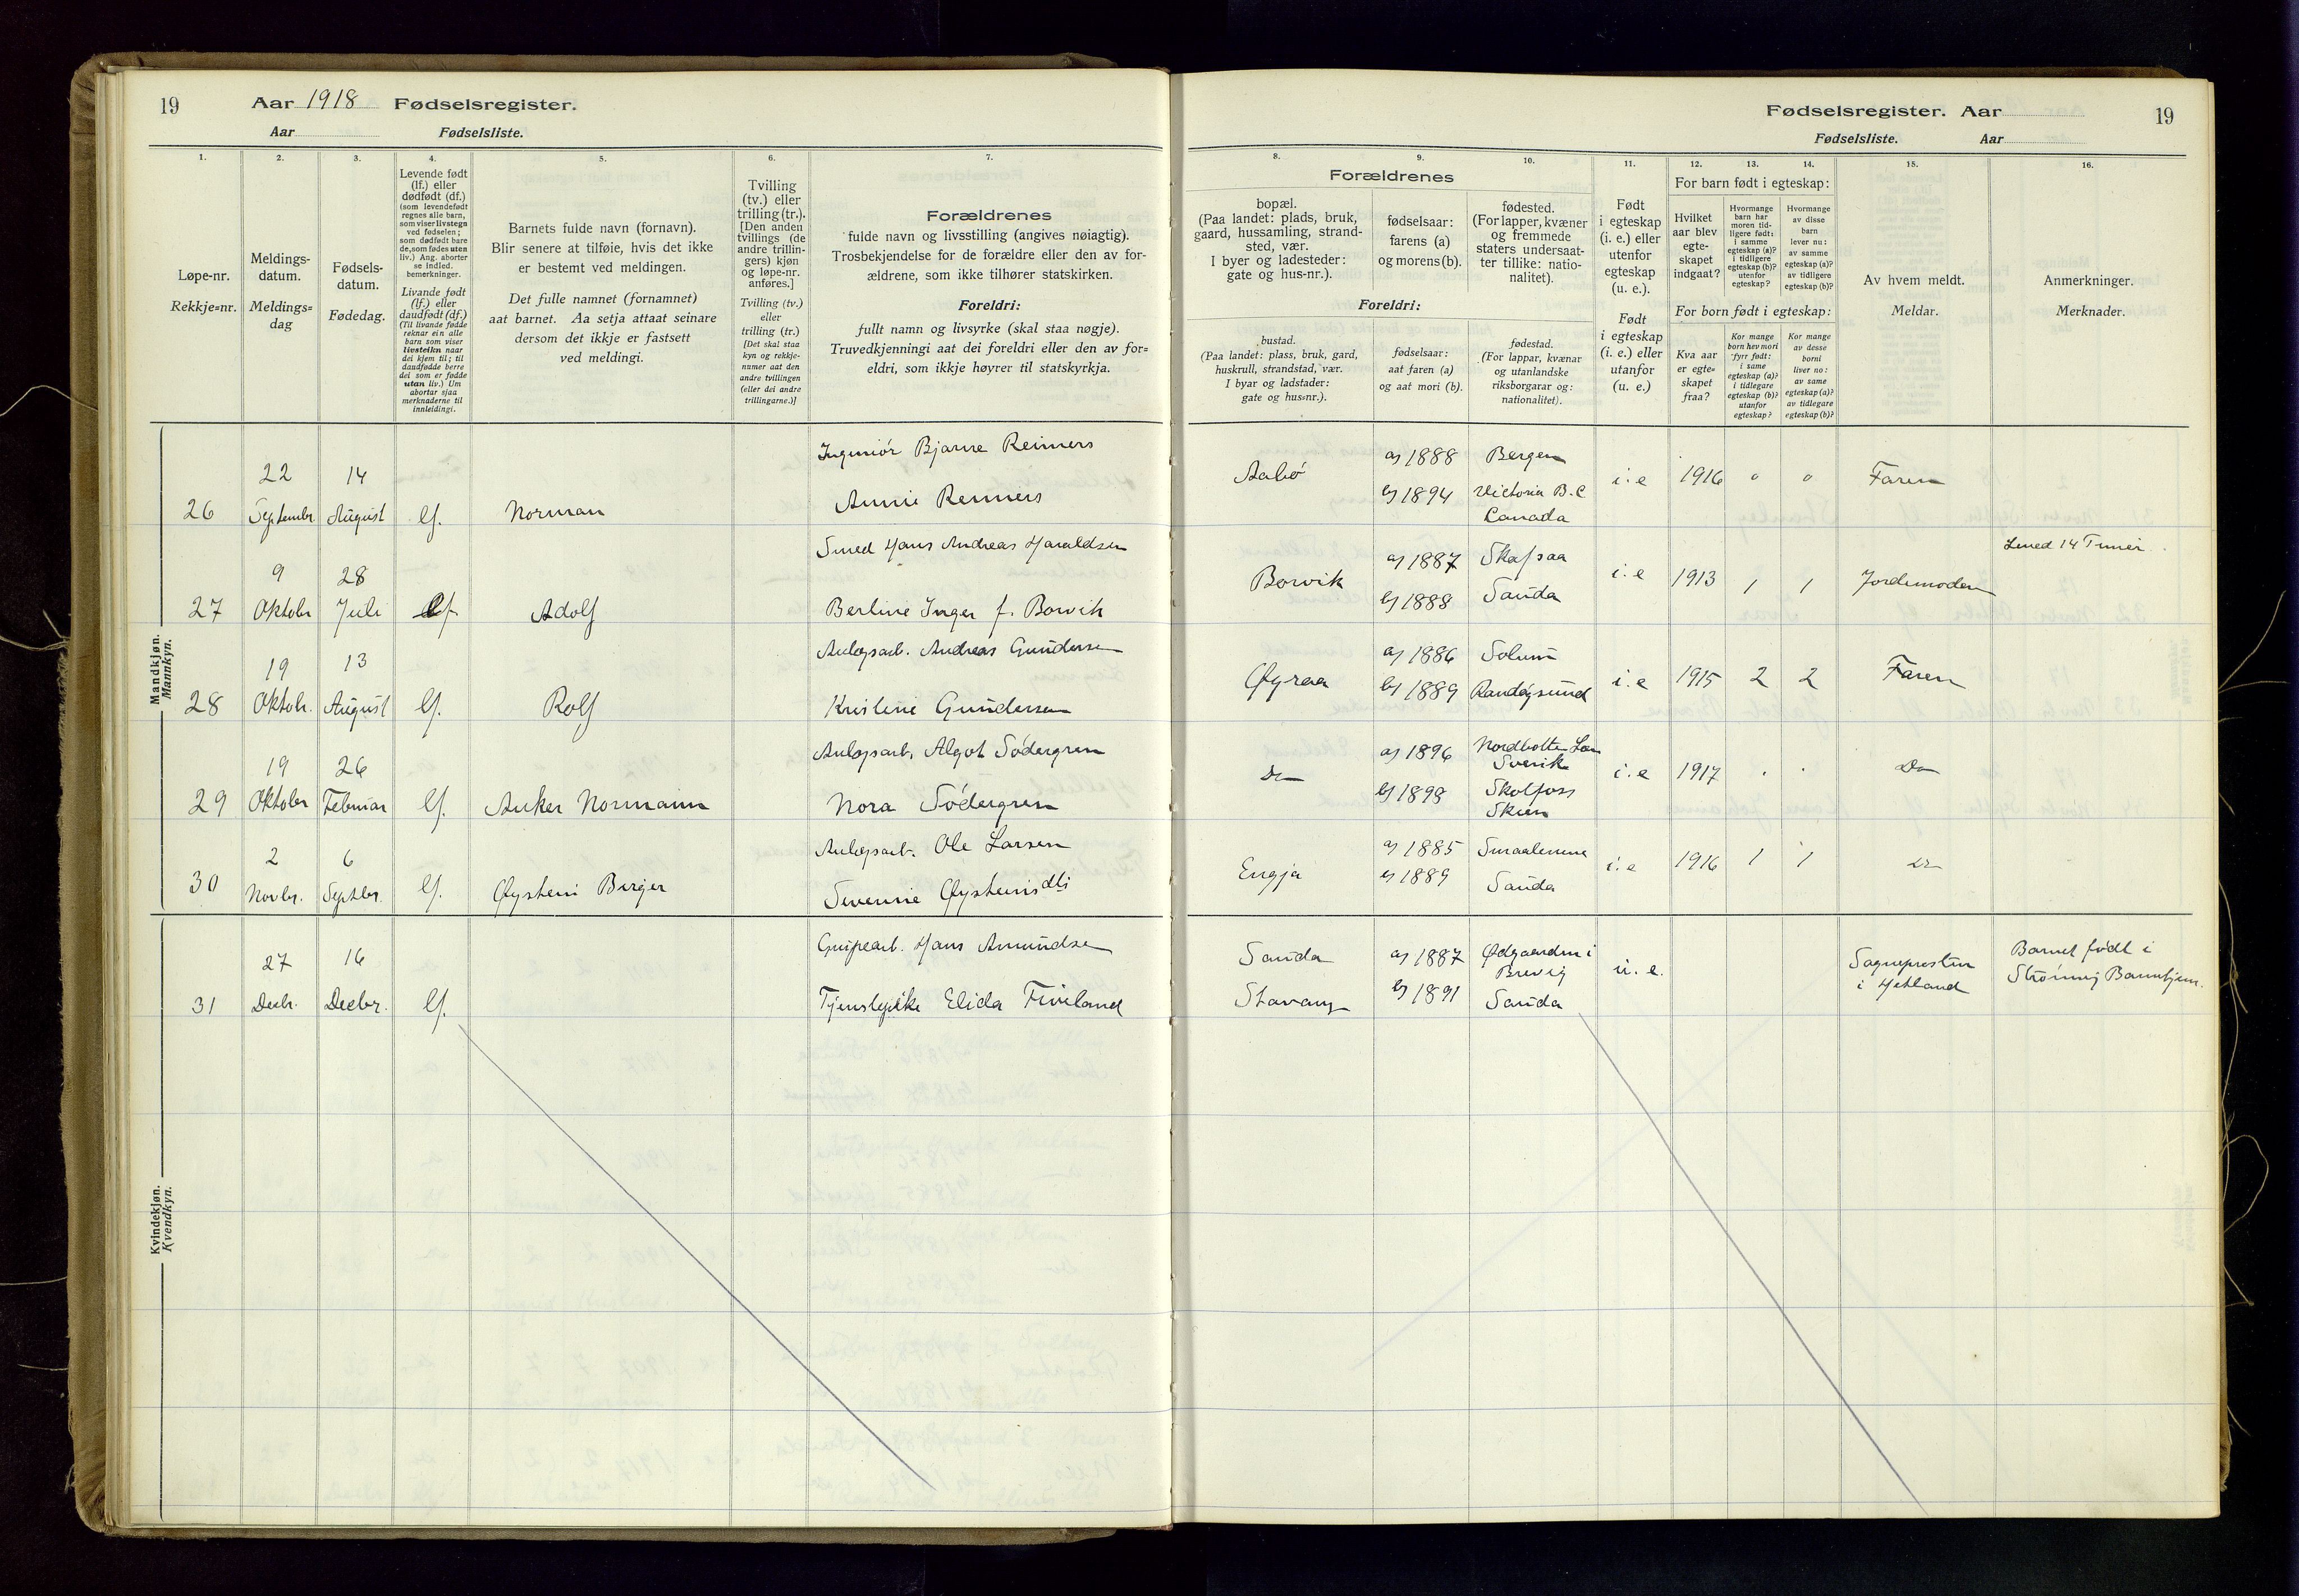 19 Aar 1918 Fødselsregister.
Aar Fødselsliste.
1. 2. 3. 4. 5. 6. 7.
Løpe-nr.
Rekkje=nr.
Meldings-
datum.
Meldings=
dag
Fødsels-
datum.
Fødedag.
Levende født
(lf.) eller
dødfødt (df.)
(som levendefødt
regnes alle barn,
som viser livstegn
ved fødselen;
som dødfødt bare
de, som fødes uten
liv.) Ang. aborter
se indled.
bemerkninger.
Livande født
(lf.) eller
daudfødt (df.)
(Til livande fødde
reknar ein alle
barn som viser
livsteikn naar
dei kjem til; til
daudfødde berre
dei som er fødde
utan liv.) Um
abortar sjaa
merknaderne til
innleidingi.
Barnets fulde navn (fornavn).
Blir senere at tilføie, hvis det ikke
er bestemt ved meldingen.
Det fulle namnet (fornamnet)
aat barnet. Aa setja attaat seinare
dersom det ikkje er fastsett
ved meldingi.
Tvilling
(tv.) eller
trilling (tr.).
[Den anden
tvillings (de
andre trillin-
gers) kjøn
og løpe-nr.
anføres.]
Tvilling (tv.)
eller
trilling (tr.)
[Det skal staa
kyn og rekkje-
numer aat den
andre tvillingen
(eller dei andre
trillingarne.)]
Forældrenes
fulde navn og livsstilling (angives nøiagtig).
Trosbekjendelse for de forældre eller den av for-
ældrene, som ikke tilhører statskirken.
Foreldri:
fullt namn og livsyrke (skal staa nøgje).
Truvedkjenningi aat dei foreldri eller den av for=
eldri, som ikkje høyrer til statskyrkja.
Mandkjøn.
Mannkyn.
Ingeniør Bjarne Reimers
22 14
26 Septembr. August lf. Norman Annie Reimers
Smed Hans Andreas Haraldsen
9 28
27 Oktobr Juli lf Adolf Berline Inger f. Borvik
Anlægsarb. Andreas Gundersen
19 13
28 Oktobr. August lf. Rolf Kristine Gundersen
Anlægsarb. Algot Södergren
19 26
29 Oktobr Februar lf. Anker Normann Nora Södergren
Anlægsarb. Ole Larsen
2 6
30 Novbr. Septbr. lf. Øystein Birger Severine Øysteinsdtr
Kvindekjøn.
Kvendkyn.
Hans Amundsen
27 16
31 Decbr. Decbr. lf. Tjenstepike Elida
Fødselsregister. Aar 19
Fødselsliste. Aar
8. 9. 10. 11. 12. 13. 14. 15. 16.
Forældrenes
bopæl.
(Paa landet: plads, bruk,
gaard, hussamling, strand-
sted, vær.
I byer og ladesteder:
gate og hus-nr.).
fødselsaar:
farens (a)
og morens (b).
fødested.
(For lapper, kvæner
og fremmede
staters undersaat-
ter tillike: natio-
nalitet).
Foreldri:
bustad.
(Paa landet: plass, bruk, gard,
huskrull, strandstad, vær.
I byar og ladstader:
gate og hus=nr.).
fødselsaar:
aat faren (a)
og aat mori (b).
fødestad.
(For lappar, kvænar
og utanlandske
riksborgarar og:
nationalitet).
Født
i egteskap
(i. e.) eller
utenfor
egteskap
(u. e.).
Født
i egteskap
(i. e.) eller
utanfor
(u. e.)
For barn født i egteskap:
Hvilket
aar blev
egte-
skapet
indgaat?
Hvormange
barn har
moren tid-
ligere født:
i samme
egteskap (a)?
i tidligere
egteskap (b)?
utenfor
egteskap?
Hvormange
av disse
barn
lever nu:
av samme
egteskap (a)?
av tidligere
egteskap (b)?
For born født i egteskap:
Kva aar
er egte=
skapet
fraa?
Kor mange
born hev mori
fyrr født:
i same
egteskap (a)?
i tidlegare
egteskap (b)?
utanfor
egteskap?
Kor mange
av desse
borni
liver no:
av same
egteskap (a)?
av tidlegare
egteskap (b)?
Av hvem meldt.
Meldar.
Anmerkninger.
Merknader.
Aabø a) 1888 Bergen i.e 1916 0 0 Faren
b) 1894 Victoria B.C
Canada
Leved 14 Timer.
Borvik a) 1887 i.e 1913 1 1 Jordemoder
b) 1888 Sauda
Øyraa a) 1886 Solum i.e 1915 2 2 Faren
b) 1889 Randøysund
Do a) 1896 Nordbotten Län i.e 1917 . . Do
Sverike
b) 1898 Skotfoss
Skien
Engja a) 1885 Smaalenene i.e 1916 1 1 Do
b) 1889 Sauda
Sauda a) 1887 Ødegaarden i u. e. Sogneprsten Barnet født i
Brevig i Hetland Strømvig Barnehjem.
Stavang b) 1891 Sauda